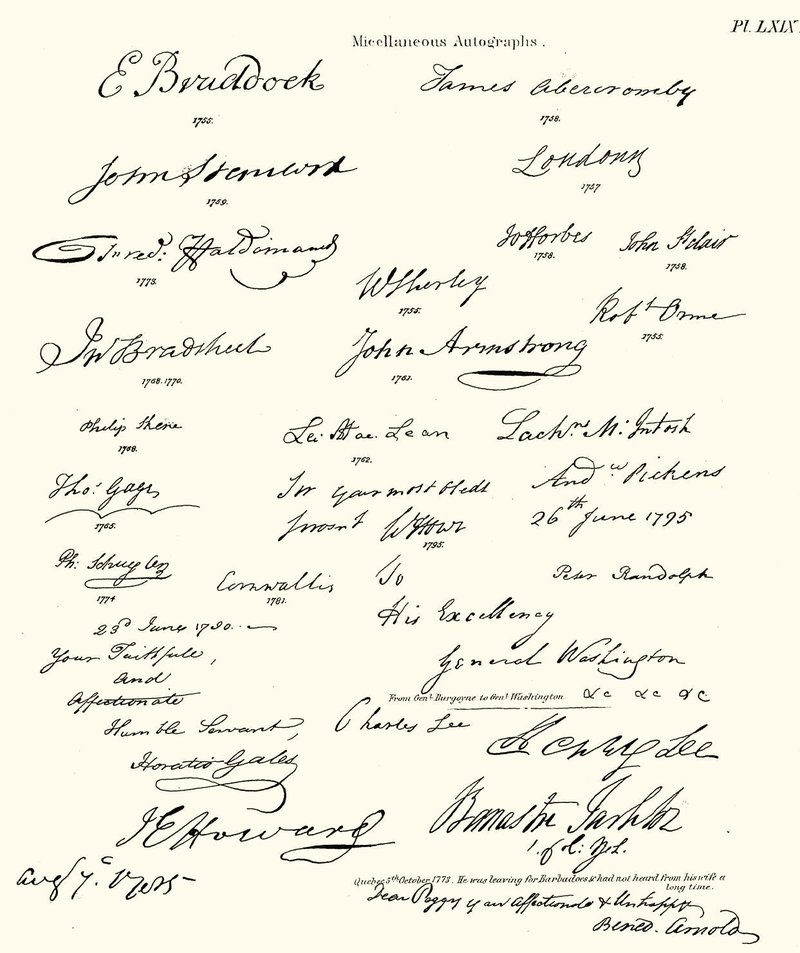 Pl. LXIX
Micellaneous Autographs.
E Braddock
1755.
James Abercromby
1758.
John Stanwix
1759.
Loudoun
1757
Fred: Haldimand
1773.
Jo Forbes
1758.
John St Clair
1758.
W Shirley
1755.
Robt Orme
1755.
Jno Bradstreet
1768.1770.
John Armstrong
1761.
Philip Skene
1768.
Mac. Lean
1762.
Lachn. Mc Intosh
Thos Gage
1765.
Your most Obedt
Servant W Howe
1795.
Andw Pickens
26th June 1795
Ph: Schuyler
1774
Cornwallis
1781.
To
Peter Randolph
His Excellency
General Washington
&c &c &c
From Genl. Burgoyne to Genl Washington
23d June 1780.
Your Faithfull,
and
Affectionate
Humble Servant,
Horatio Gates
Charles Lee
Henry Lee
J E Howard
Banastre Tarleton
Quebec 5th October 1773. He was leaving for Barbadoes & had not heard from his wife a
long time.
Dear Peggy yr own Affectionate & Unhappy
Bened. Arnold